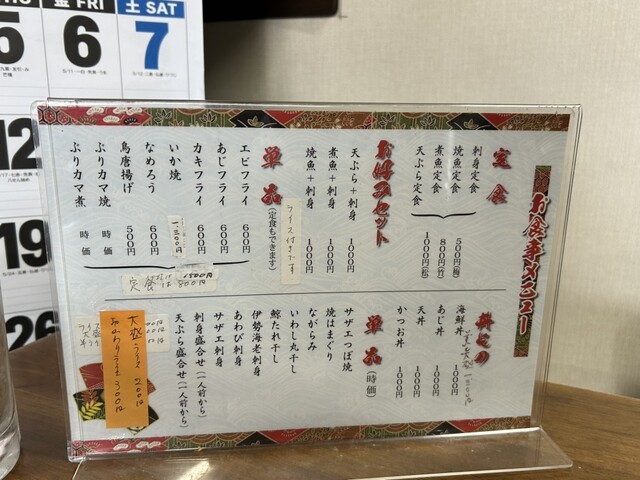 金 FRI
土 SAT
5
6
7
12
19
26
お食事メニュー
定食
刺身定食
焼魚定食
煮魚定食
天ぷら定食
500円(梅)
800円(竹)
1000円(松)
お好みセット
天ぷら+刺身 1000円
煮魚+刺身 1000円
焼魚+刺身 1000円
ライス付きです
単品(定食もできます)
エビフライ 600円
あじフライ 600円
カキフライ 600円
いか焼 1,300円
なめろう 600円
鳥唐揚げ 500円
ぶりカマ焼 時価
ぶりカマ煮 時価
定食は
1500円
800円
海鮮丼
あじ丼 1000円
天丼 1000円
かつお丼 1000円
単品(時価)
サザエつぼ焼
焼はまぐり
ながらみ
いわし丸干し
鯨たれ干し
伊勢海老刺身
あわび刺身
サザエ刺身
刺身盛合せ(二人前から)
天ぷら盛合せ(二人前から)
大盛ライス 200円
おかわりライス 300円